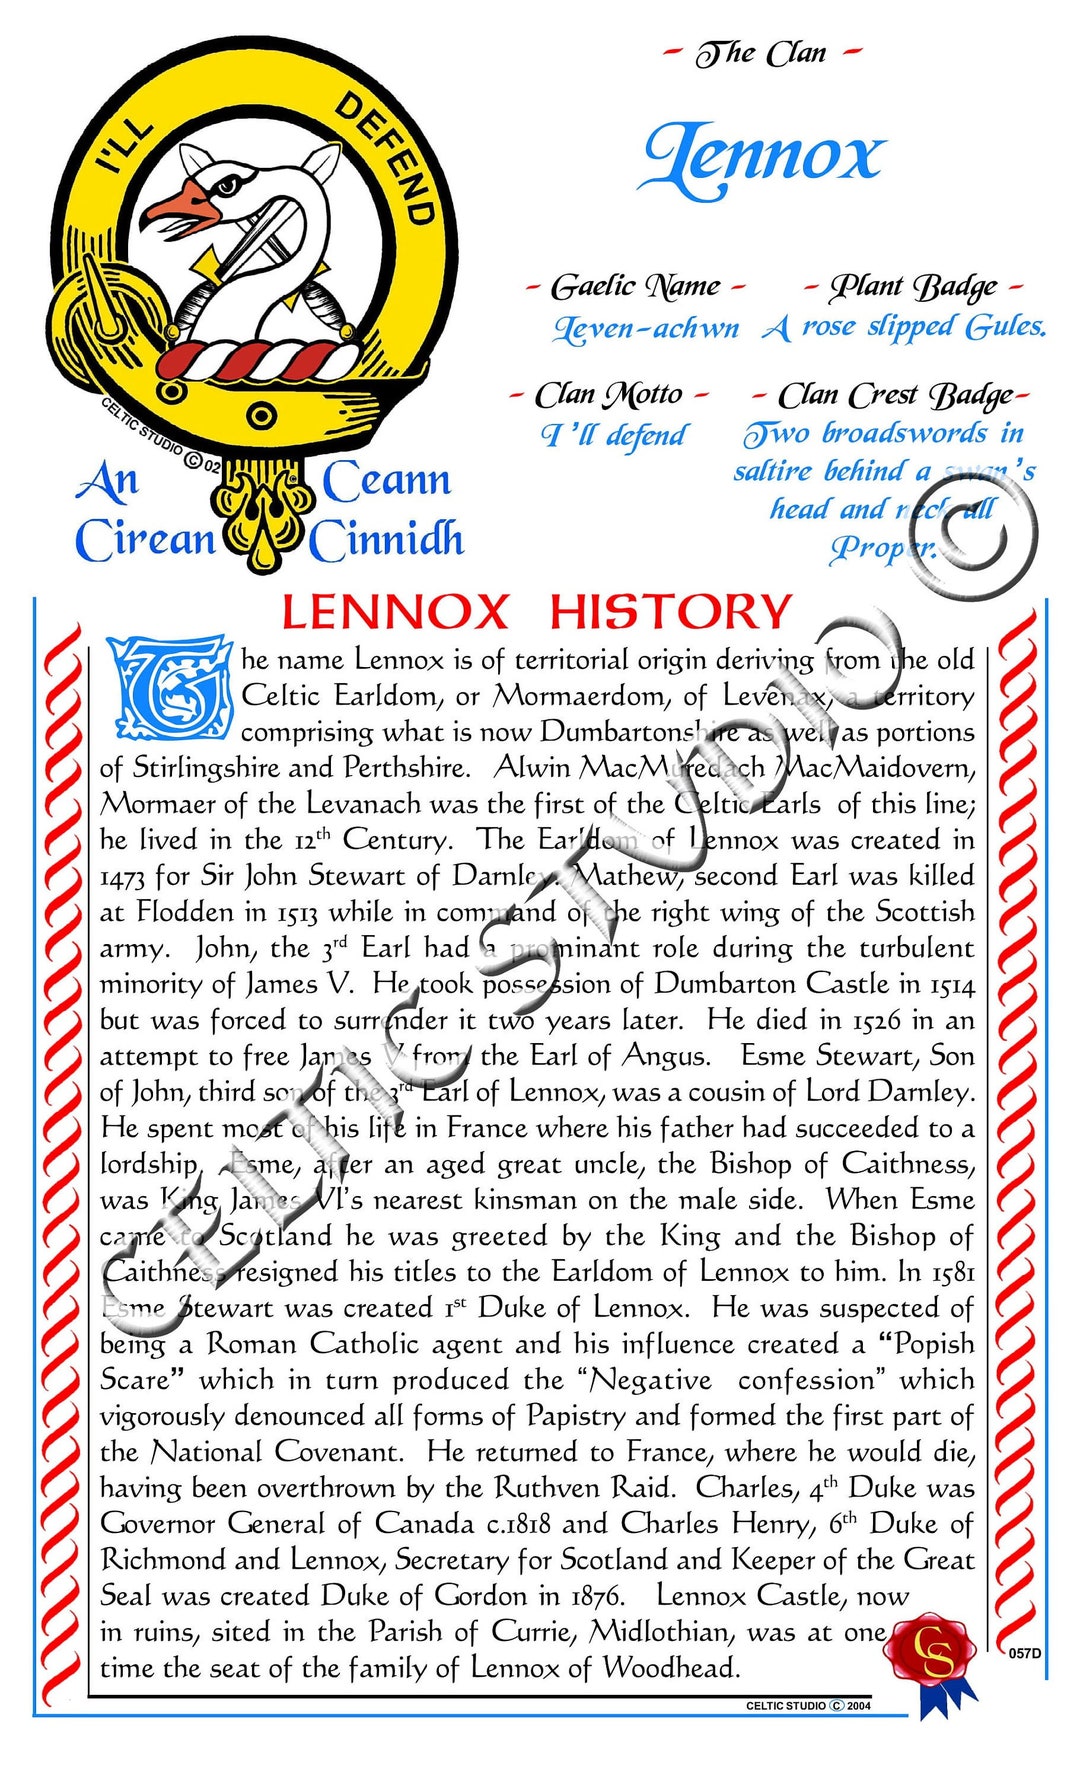 - The Clan -
Lennox
I'LL DEFEND
- Gaelic Name -
Leven-achwn
- Plant Badge -
A rose slipped Gules.
- Clan Motto -
I'll defend
- Clan Crest Badge-
Two broadswords in
saltire behind a swan's
head and neck all
Proper.
CELTIC STUDIO © 02
An Ceann
Cirean Cinnidh
©
LENNOX HISTORY
The name Lennox is of territorial origin deriving from the old
Celtic Earldom, or Mormaerdom, of Levenax, a territory
comprising what is now Dumbartonshire as well as portions
of Stirlingshire and Perthshire. Alwin MacMuredach MacMaidovern,
Mormaer of the Levanach was the first of the Celtic Earls of this line;
he lived in the 12th Century. The Earldom of Lennox was created in
1473 for Sir John Stewart of Darnley. Mathew, second Earl was killed
at Flodden in 1513 while in command of the right wing of the Scottish
army. John, the 3rd Earl had a prominant role during the turbulent
minority of James V. He took possession of Dumbarton Castle in 1514
but was forced to surrender it two years later. He died in 1526 in an
attempt to free James V from the Earl of Angus. Esme Stewart, Son
of John, third son of the 3rd Earl of Lennox, was a cousin of Lord Darnley.
He spent most of his life in France where his father had succeeded to a
lordship. Esme, after an aged great uncle, the Bishop of Caithness,
was King James VI's nearest kinsman on the male side. When Esme
came to Scotland he was greeted by the King and the Bishop of
Caithness resigned his titles to the Earldom of Lennox to him. In 1581
Esme Stewart was created 1st Duke of Lennox. He was suspected of
being a Roman Catholic agent and his influence created a “Popish
Scare” which in turn produced the “Negative confession” which
vigorously denounced all forms of Papistry and formed the first part of
the National Covenant. He returned to France, where he would die,
having been overthrown by the Ruthven Raid. Charles, 4th Duke was
Governor General of Canada c.1818 and Charles Henry, 6th Duke of
Richmond and Lennox, Secretary for Scotland and Keeper of the Great
Seal was created Duke of Gordon in 1876. Lennox Castle, now
in ruins, sited in the Parish of Currie, Midlothian, was at one
time the seat of the family of Lennox of Woodhead.
CELTIC STVDIO
CS
057D
CELTIC STUDIO © 2004